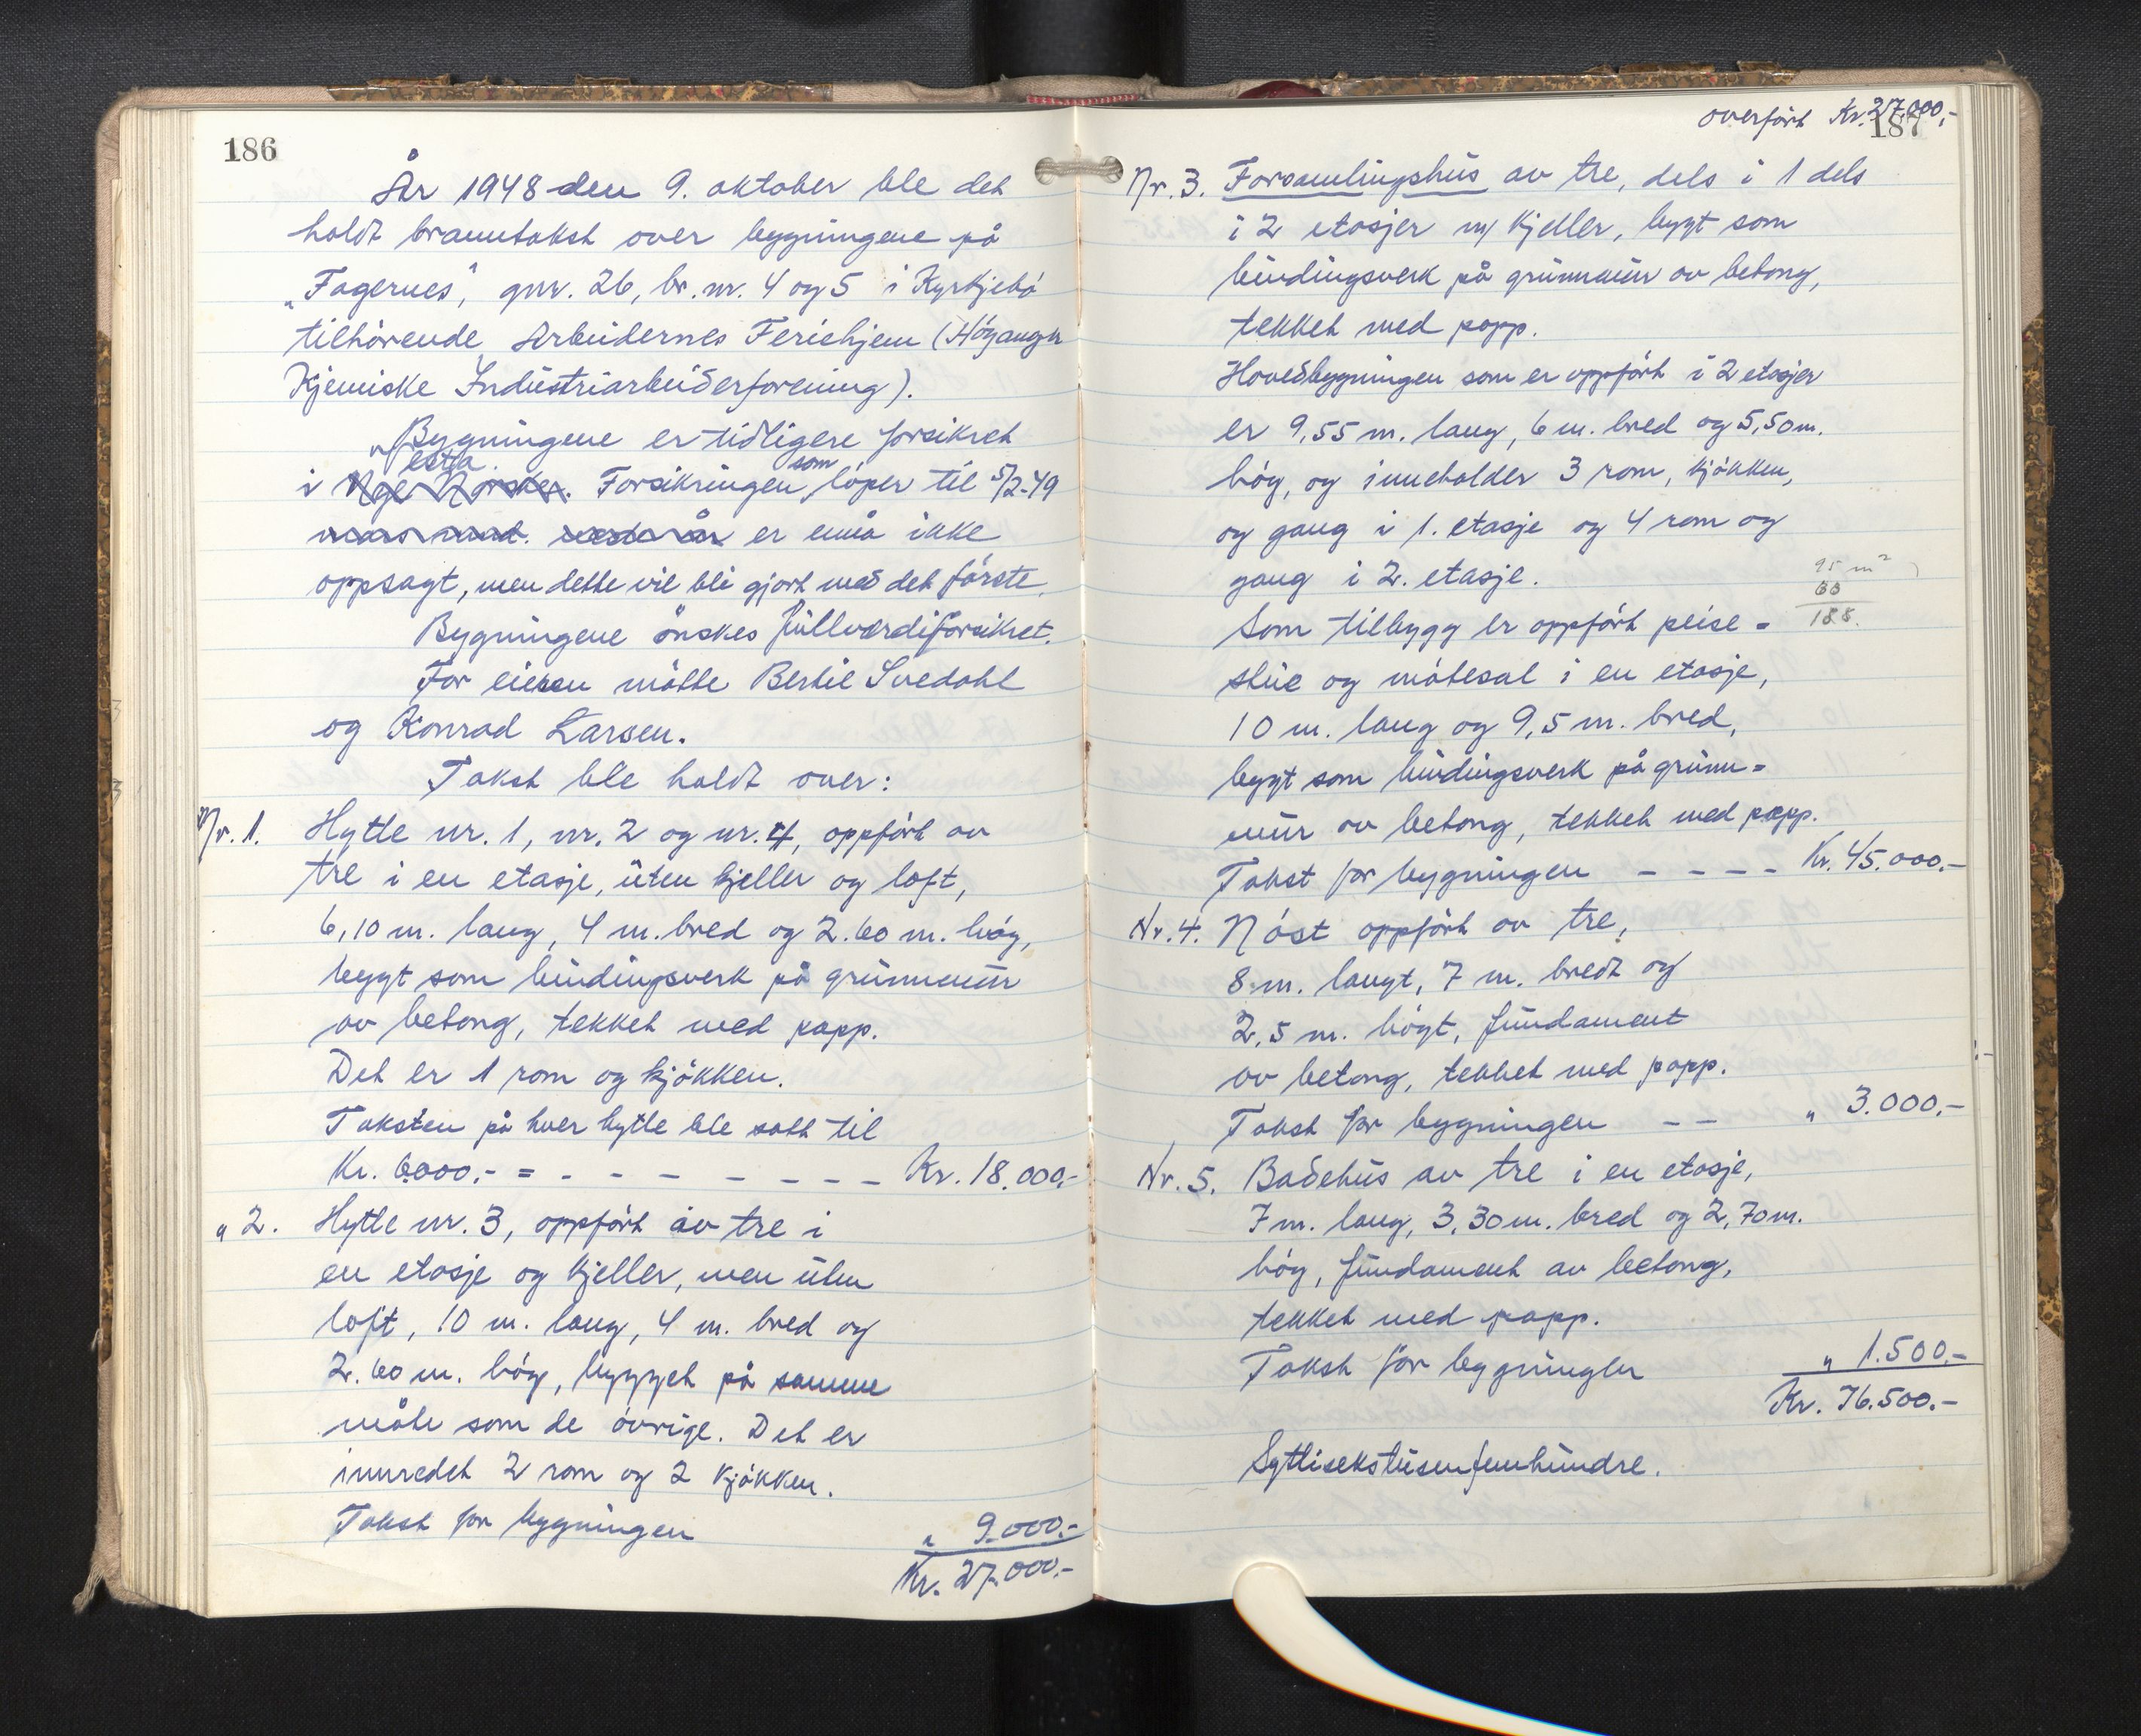 186
År 1948 den 9. oktober ble det
holdt branntakst over bygningene på
„Fagernes", gnr. 26, br. nr. 4 og 5 i Kyrkjebö
tilhörende Arbeidernes Feriehjem (Höyanger
Kjemiske Industriarbeiderforening).
Bygningene er tidligere forsikret
som
i Forsikringen löper til 5/2-49
er ennå ikke
oppsagt, men dette vil bli gjort med det förste.
Bygningene önskes fullverdiforsikret.
For eieren mötte Bertil Svedahl
og Konrad Larsen.
Takst ble holdt over:
Nr. 1. Hytte nr. 1, nr. 2 og nr. 4, oppfört av
tre i en etasje, uten kjeller og loft,
6,10 m. lang, 4 m. bred og 2.60 m. höy,
bygt som bindingsverk på grunnmur
av betong, tekket med papp.
Det er 1 rom og kjökken.
Taksten på hver hytte ble satt til
Kr. 6000,- = - - - - - - - - Kr. 18.000,-
„ 2. Hytte nr. 3, oppfört av tre i
en etasje og kjeller, men uten
loft, 10 m. lang, 4 m. bred og
2.60 m. höy, bygget på samme
måte som de övrige. Det er
innredet 2 rom og 2 kjökken.
Takst for bygningen „ 9.000.-
Kr. 27.000.-
overfört Kr. 27.000,-
187
Nr. 3. Forsamlingshus av tre, dels i 1 dels
i 2 etasjer m/ kjeller, bygt som
bindingsverk på grunnmur av betong,
tekket med papp.
Hovedbygningen som er oppfört i 2 etasjer
er 9,55 m. lang, 6 m. bred og 5,50 m.
höy, og inneholder 3 rom, kjökken,
og gang i 1. etasje og 4 rom og
gang i 2. etasje.
95 m²
188.
Som tilbygg er oppfört peise-
stue og mötesal i en etasje,
10 m. lang og 9,5 m. bred,
bygt som bindingsverk på grunn-
mur av betong, tekket med papp.
Takst for bygningen - - - - Kr. 45.000.-
Nr. 4. Nöst oppfört av tre,
8 m. langt, 7 m. bredt og
2,5 m. höyt, fundament
av betong, tekket med papp.
Takst for bygningen - - „ 3.000.-
Nr. 5. Badehus av tre i en etasje,
7 m. lang, 3,30 m. bred og 2,70 m.
höy, fundament av betong,
tekket med papp.
Takst for bygningen „ 1.500.-
Kr. 76.500.-
Syttisekstusenfemhundre.